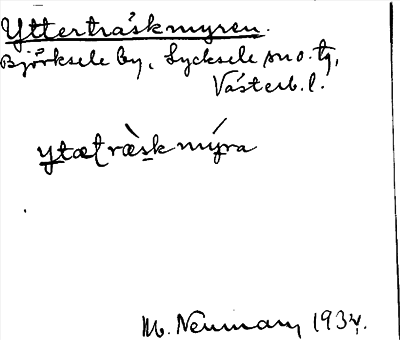 Ytterträskmyren.
Björksele by, Lycksele sn o. tg,
Västerb. l.
ytætræskmýra
M. Neuman, 193